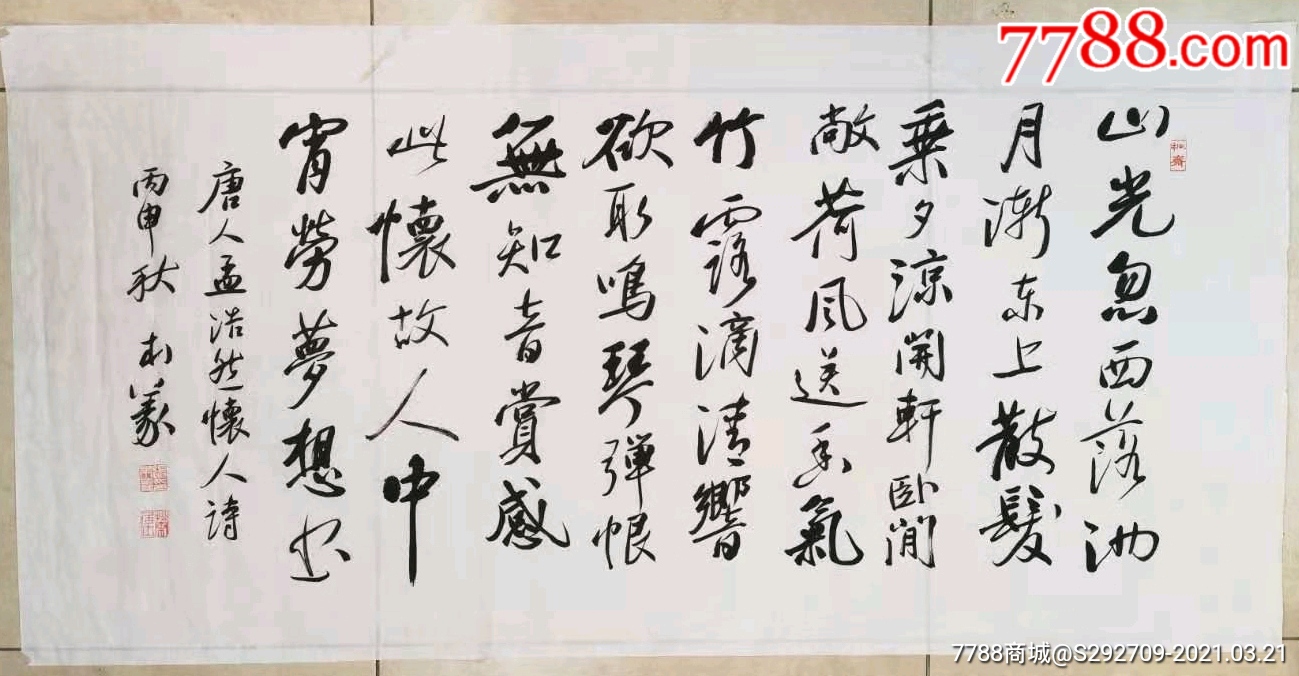 7788.com
山光忽西落池
月漸东上散髮
乘夕涼開軒卧閒
敞荷风送香氣
竹露滴清響
欲取鳴琴彈恨
無知音賞感
此懷故人中
宵勞夢想
唐人孟浩然懷人詩
丙申秋 義
7788商城@S292709-2021.03.21